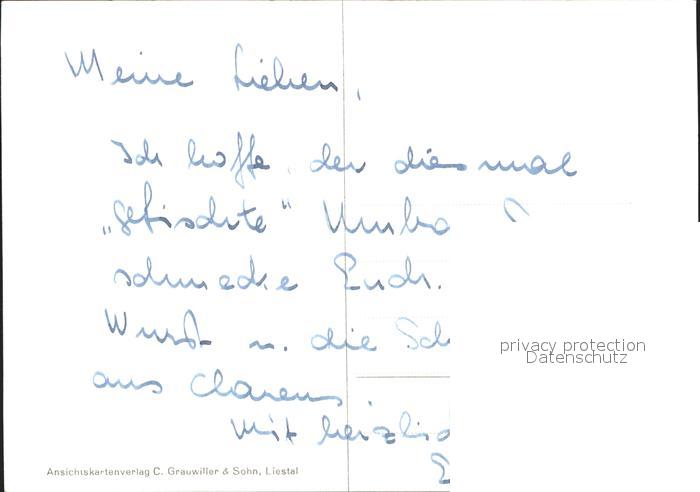 Meine Lieben,
Ich hoffe, der diesmal
„gefischte“
schmecke Euch.
Wurst u. die Sch
aus Clarens
Mit herzlic
privacy protection
Datenschutz
Ansichtskartenverlag C. Grauwiller & Sohn, Liestal